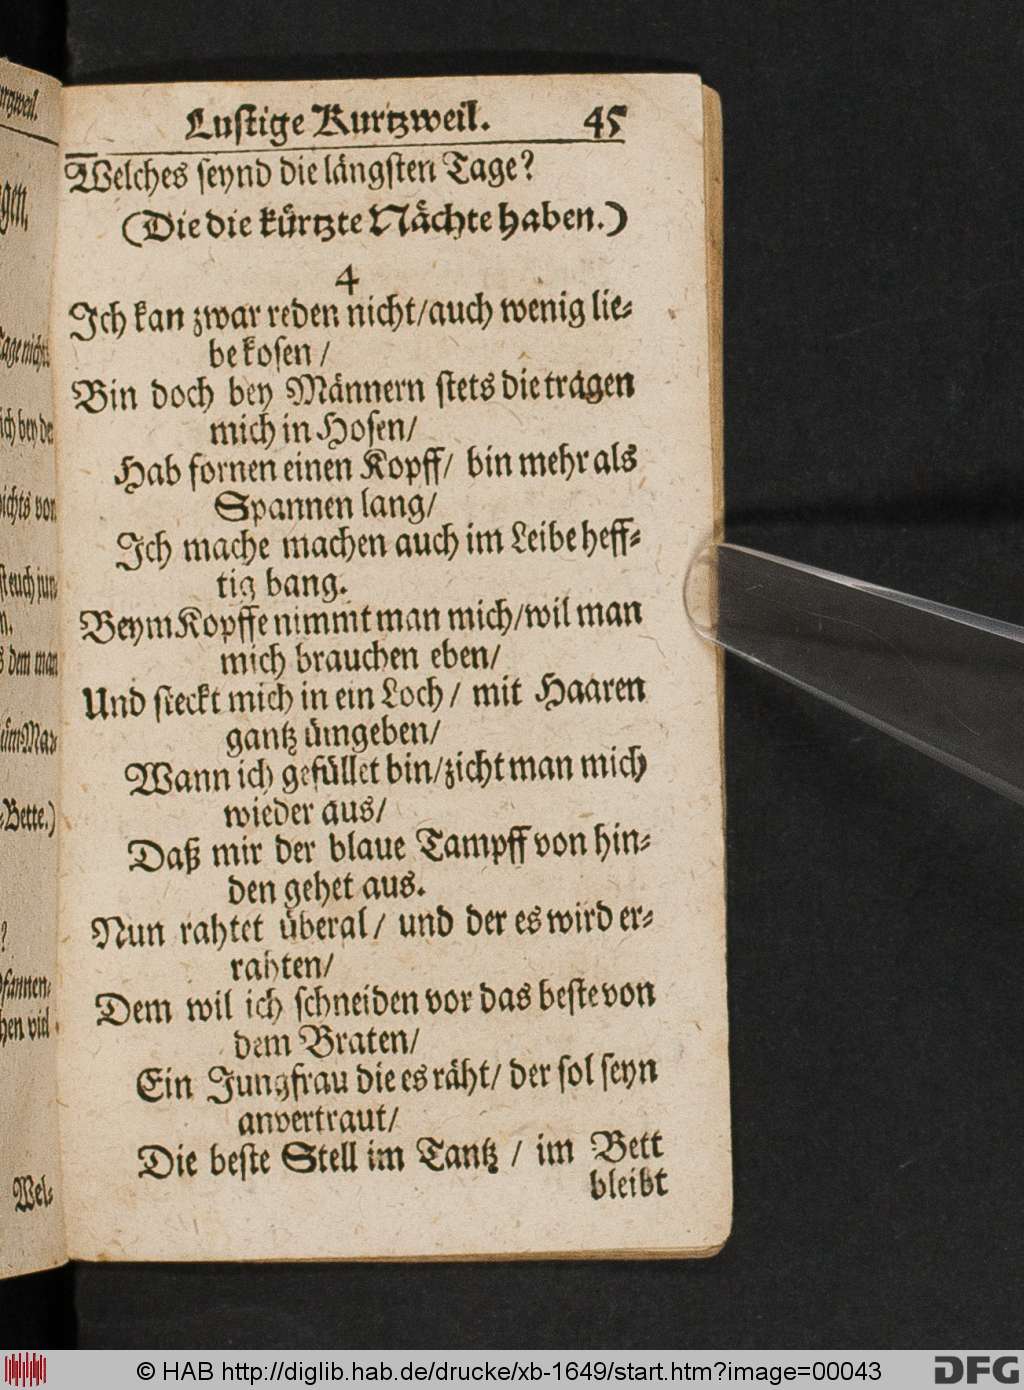 Lustige Kurtzweil. 45
Welches seynd die längsten Tage?
(Die die kürtzte Nächte haben.)
4
Ich kan zwar reden nicht/auch wenig lie-
be kosen /
Bin doch bey Männern stets die tragen
mich in Hosen/
Hab fornen einen Kopff/ bin mehr als
Spannen lang/
Ich mache machen auch im Leibe heff-
tig bang.
Beym Kopffe nimmt man mich/wil man
mich brauchen eben/
Und steckt mich in ein Loch / mit Haaren
gantz ümgeben/
Wann ich gefüllet bin/zicht man mich
wieder aus/
Daß mir der blaue Tampff von hin-
den gehet aus.
Nun rahtet überal/ und der es wird er-
rahten/
Dem wil ich schneiden vor das beste von
dem Braten/
Ein Jungfrau die es räht/ der sol seyn
anvertraut/
Die beste Stell im Tantz / im Bett
bleibt
Bette.)
Wel-
© HAB http://diglib.hab.de/drucke/xb-1649/start.htm?image=00043
DFG